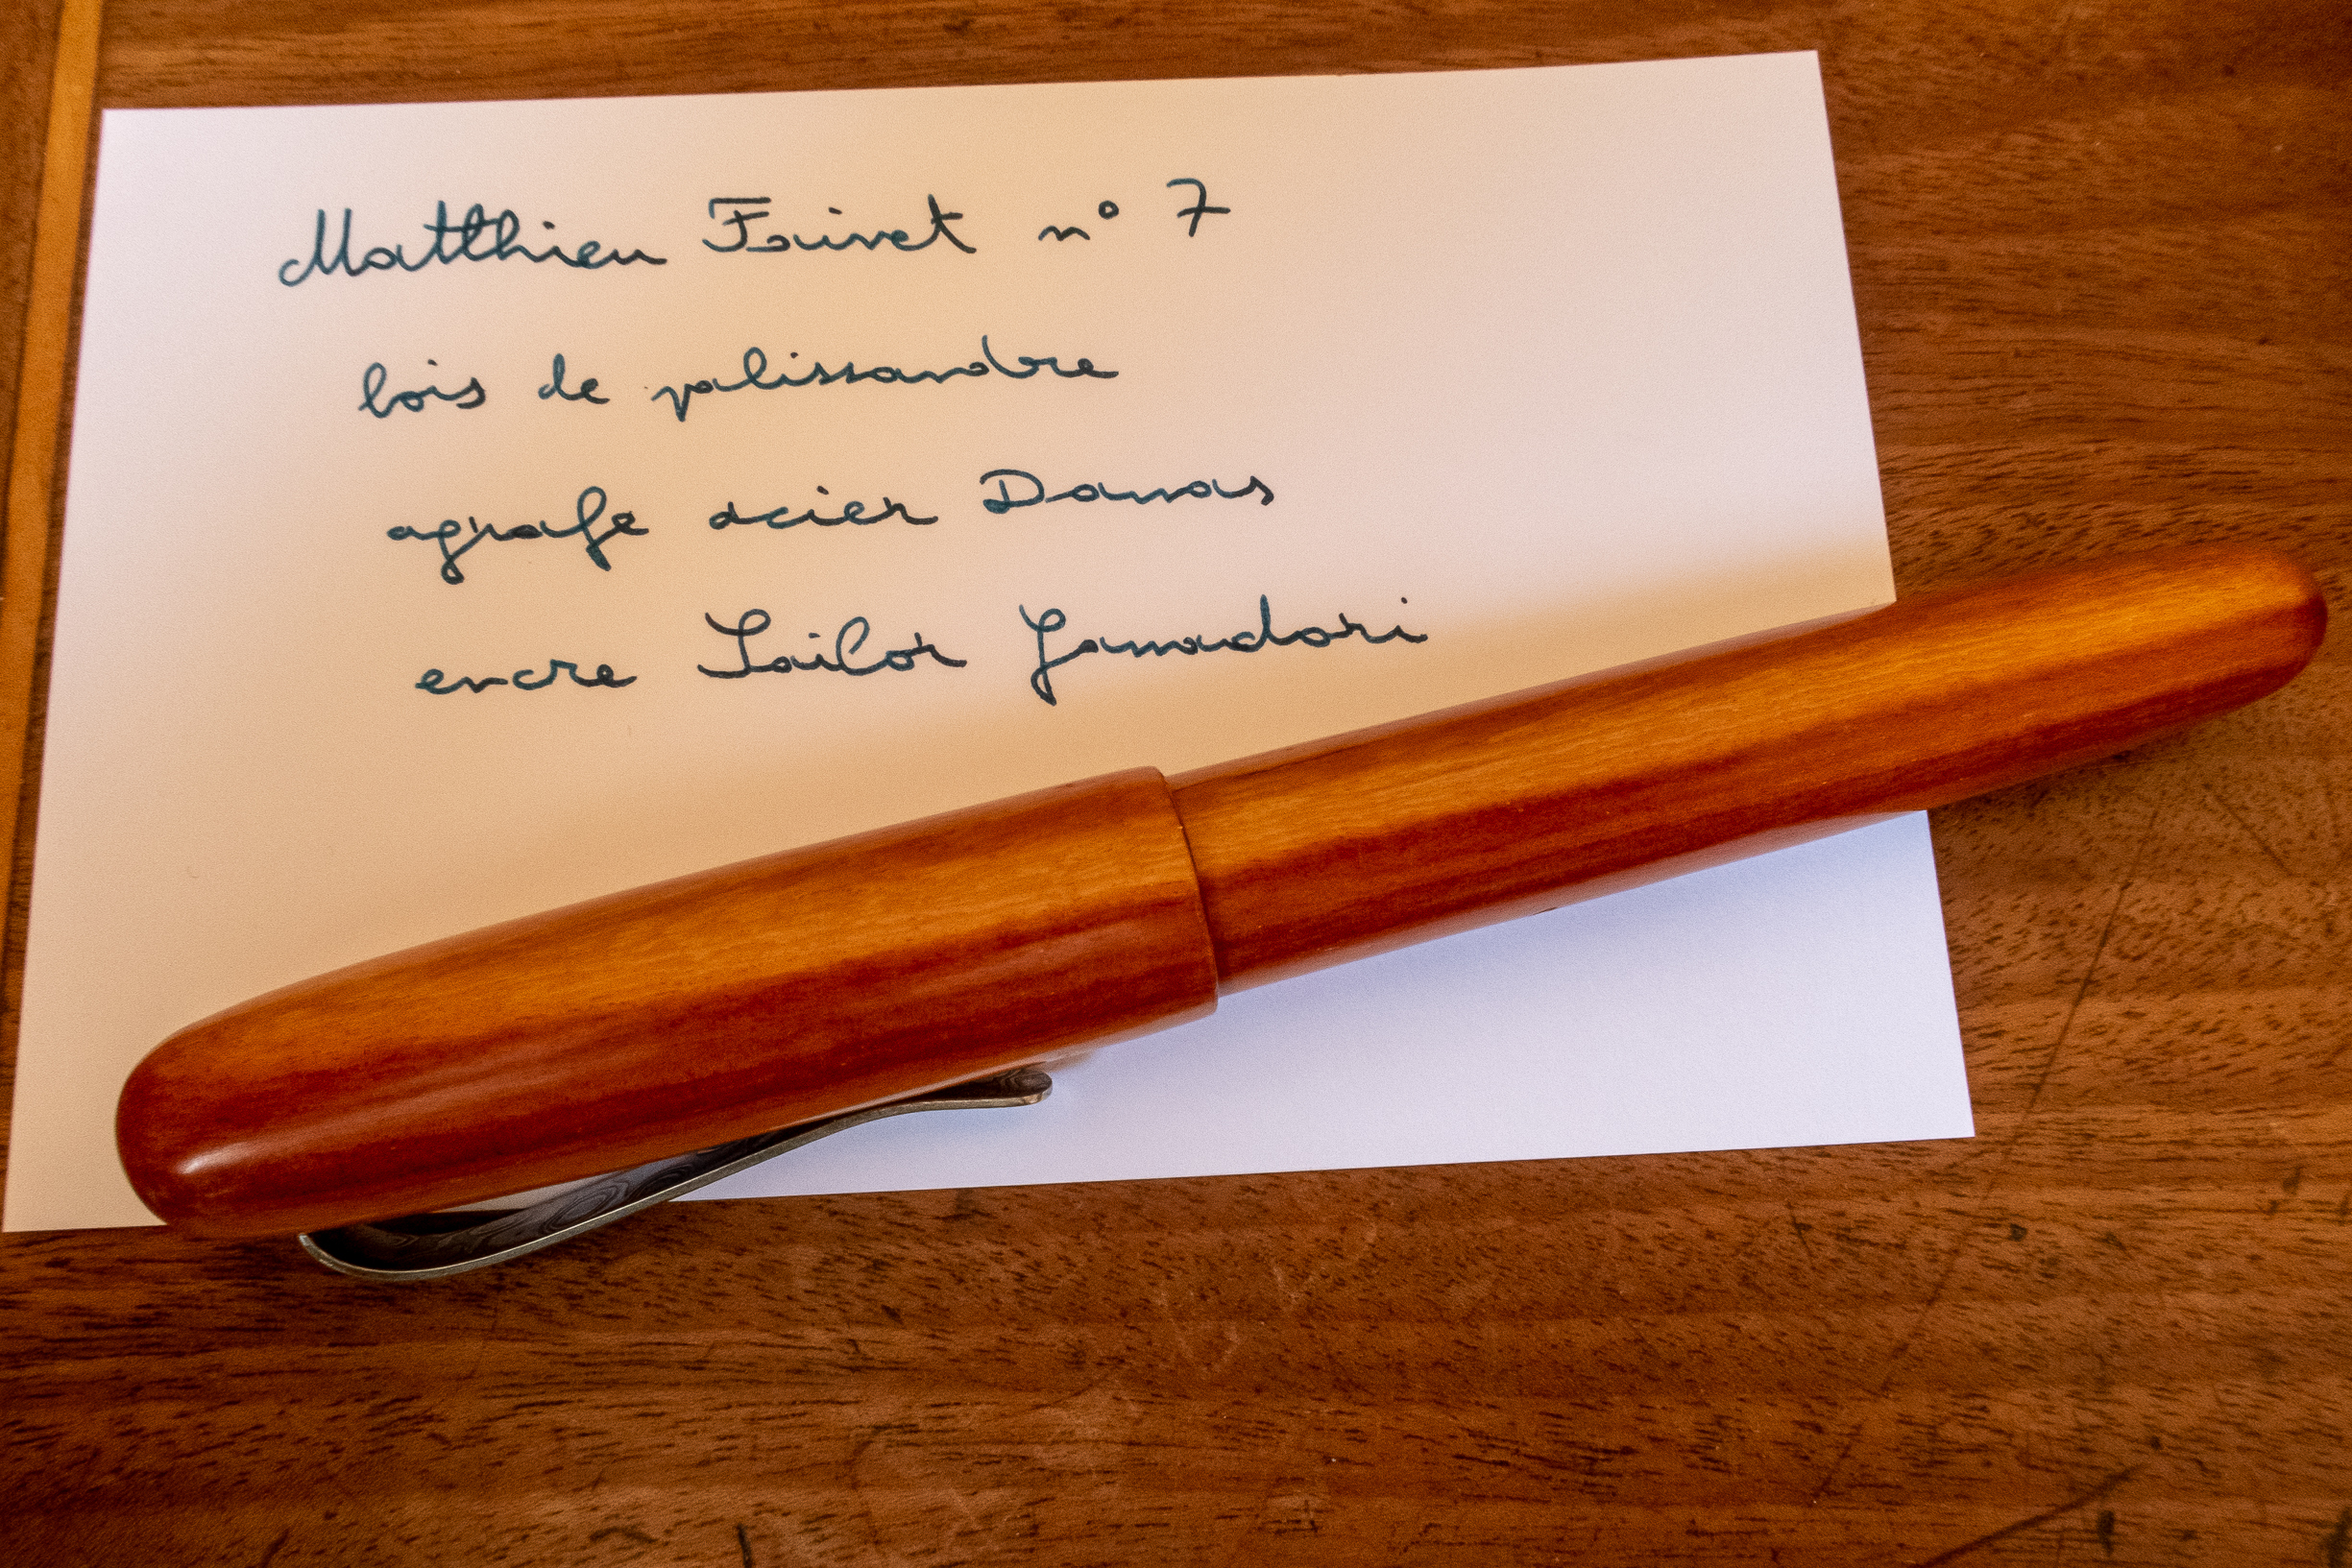 Matthieu Faivet n° 7
bois de palissandre
agrafe acier Damas
encre Sailor Yamadori